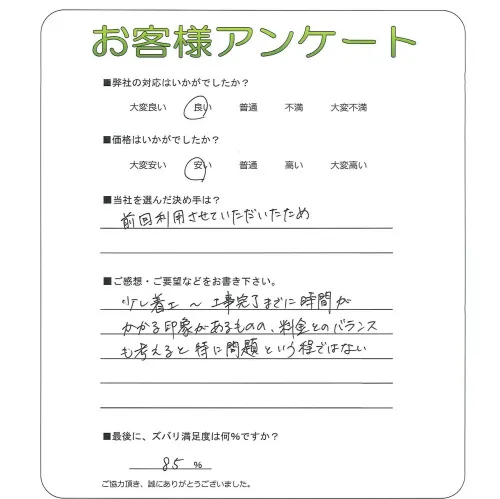 お客様アンケート
■弊社の対応はいかがでしたか？
大変良い 良い 普通 不満 大変不満
■価格はいかがでしたか？
大変安い 安い 普通 高い 大変高い
■当社を選んだ決め手は？
前回利用させていただいたため
■ご感想・ご要望などをお書き下さい。
少し着工～工事完了までに時間が
かかる印象があるものの、料金とのバランス
も考えると特に問題という程ではない
■最後に、ズバリ満足度は何%ですか？
85 %
ご協力頂き、誠にありがとうございました。